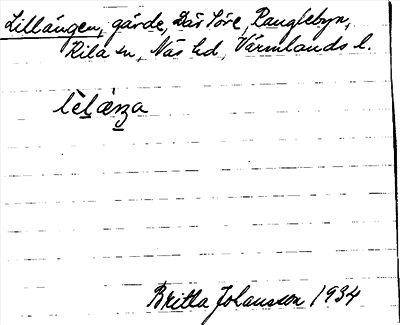 Lillängen, gärde, Där Före, Ranglebyn,
Kila sn, Näs hd, Värmlands l.
lèlæŋa
Britta Johansson 1934